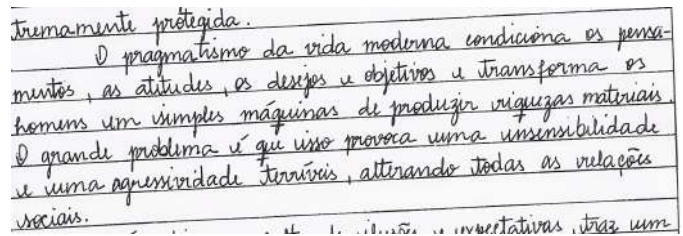 tremamente protegida.
O pragmatismo da vida moderna condiciona os pensa-
mentos, as atitudes, os desejos e objetivos e transforma os
homens em simples máquinas de produzir riquezas materiais.
O grande problema é que isso provoca uma insensibilidade
e uma agressividade terríveis, alterando todas as relações
sociais.
de ilusões e expectativas, traz um